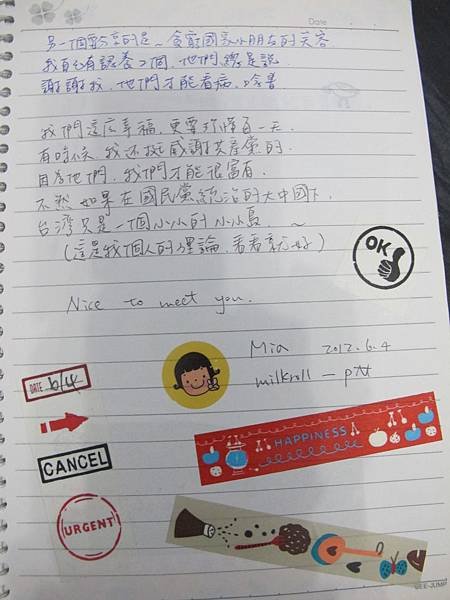 Date
另一個難忘的是~貧窮國家小朋友的笑容
我自己有認養2個,他們總是說
謝謝我,他們才能看病、唸書
我們這麼幸福,更要珍惜每一天.
有時候,我还挺感謝共產黨的.
因為他們,我們才能很富有.
不然如果在國民黨統治的大中國下,
台灣只是一個小小的小小島 ~
(這是我個人的理論,看看就好)
OK
Nice to meet you.
Mia 2012.6.4
milkroll - ptt
DATE 6/4
HAPPINESS
CANCEL
URGENT
GEE-JUMP